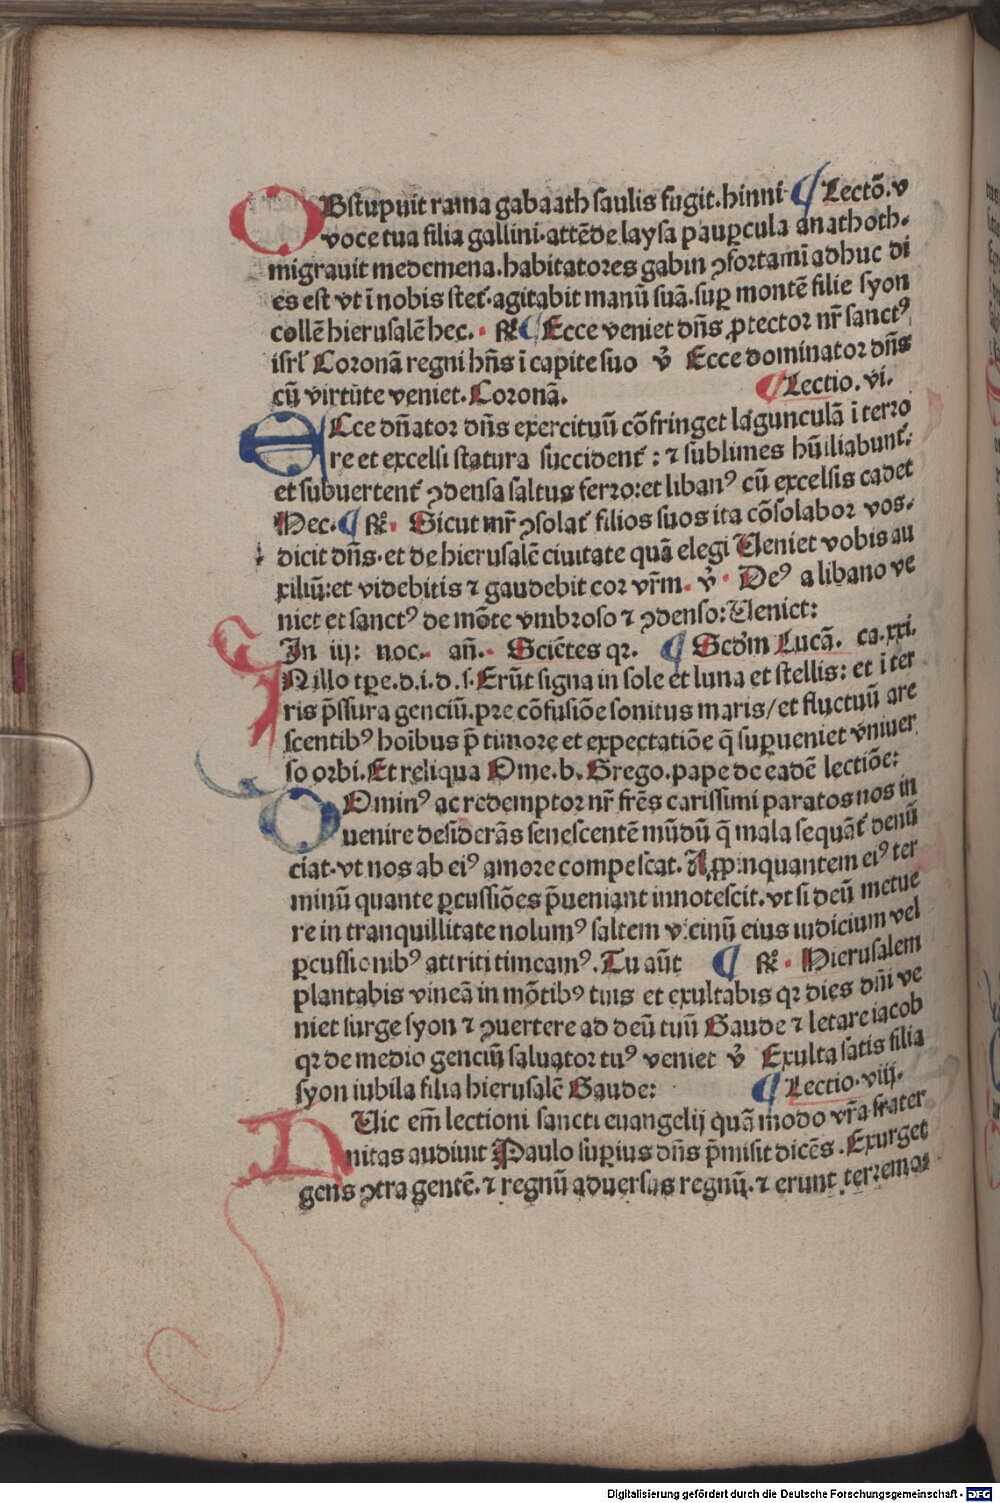 OBstupuit rama gabaath saulis fugit. hinni ¶ Lectō. v
voce tua filia gallini. attēde laysa paupcula anathoth.
migrauit medemena. habitatores gabin ꝯfortamī adhuc di
es est vt ī nobis stet᷑. agitabit manū suā. sup̱ montē filie syon
collē hierusalē hec. ℟ ¶ Ecce veniet dn̄s ꝓtector nr̄ sanctꝰ
isrl̓ Coronā regni hn̄s ī capite suo ℣ Ecce dominator dn̄s
cū virtute veniet. Coronā. ¶ Lectio. vi.
ECce dn̄ator dn̄s exercituū cōfringet lagunculā ī terro
re et excelsi statura succident᷑ : ⁊ sublimes hūiliabunt᷑.
et subuertent᷑ ꝯdensa saltus ferro: et libanꝰ cū excelsis cadet
Hec. ¶ ℟. Sicut mr̄ ꝯsolat᷑ filios suos ita cōsolabor vos.
dicit dn̄s. et de hierusalē ciuitate quā elegi Ueniet vobis au
xiliū: et videbitis ⁊ gaudebit cor vr̄m. ℣. Deꝰ a libano ve
niet et sanctꝰ de mōte vmbroso ⁊ ꝯdenso: Ueniet:
In iij: noc. an̄. Sciētes qꝛ. ¶ Scd̓m Lucā. ca. xxi.
INillo tꝑe. d. i. d. s. Erūt signa in sole et luna et stellis: et ī ter
ris p̄ssura genciū. pre cōfusiōe sonitus maris / et fluctuū are
scentibꝰ hoībus p̄ timore et expectatiōe q̄ suꝑueniet vniuer
so orbi. Et reliqua Ome. b. Grego. pape de eadē lectiōe:
DOminꝰ ac redemptor nr̄ frēs carissimi paratos nos in
uenire desiderās senescentē mūdū q̄ mala sequāt᷑ denū
ciat. vt nos ab eiꝰ amore compescat. Aꝓpinquantem eiꝰ ter
minū quante ꝑcussiōes p̄ueniant innotescit. vt si deū metue
re in tranquillitate nolumꝰ saltem vicinū eius iudicium vel
ꝑcussionibꝰ attriti timeamꝰ. Tu aūt ¶ ℟. Hierusalem
plantabis vineā in mōtibꝰ tuis et exultabis qꝛ dies dn̄i ve
niet surge syon ⁊ ꝯuertere ad deū tuū Gaude ⁊ letare iacob
qꝛ de medio genciū saluator tuꝰ veniet ℣ Exulta satis filia
syon iubila filia hierusalē Gaude: ¶ Lectio. viij.
HUic em̄ lectioni sancti euangelij quā modo vr̄a frater
nitas audiuit Paulo suꝑius dn̄s p̄misit dicēs. Exurget
gens ꝯtra gentē. ⁊ regnū aduersus regnū. ⁊ erunt terremo⁊
Digitalisierung gefördert durch die Deutsche Forschungsgemeinschaft - DFG